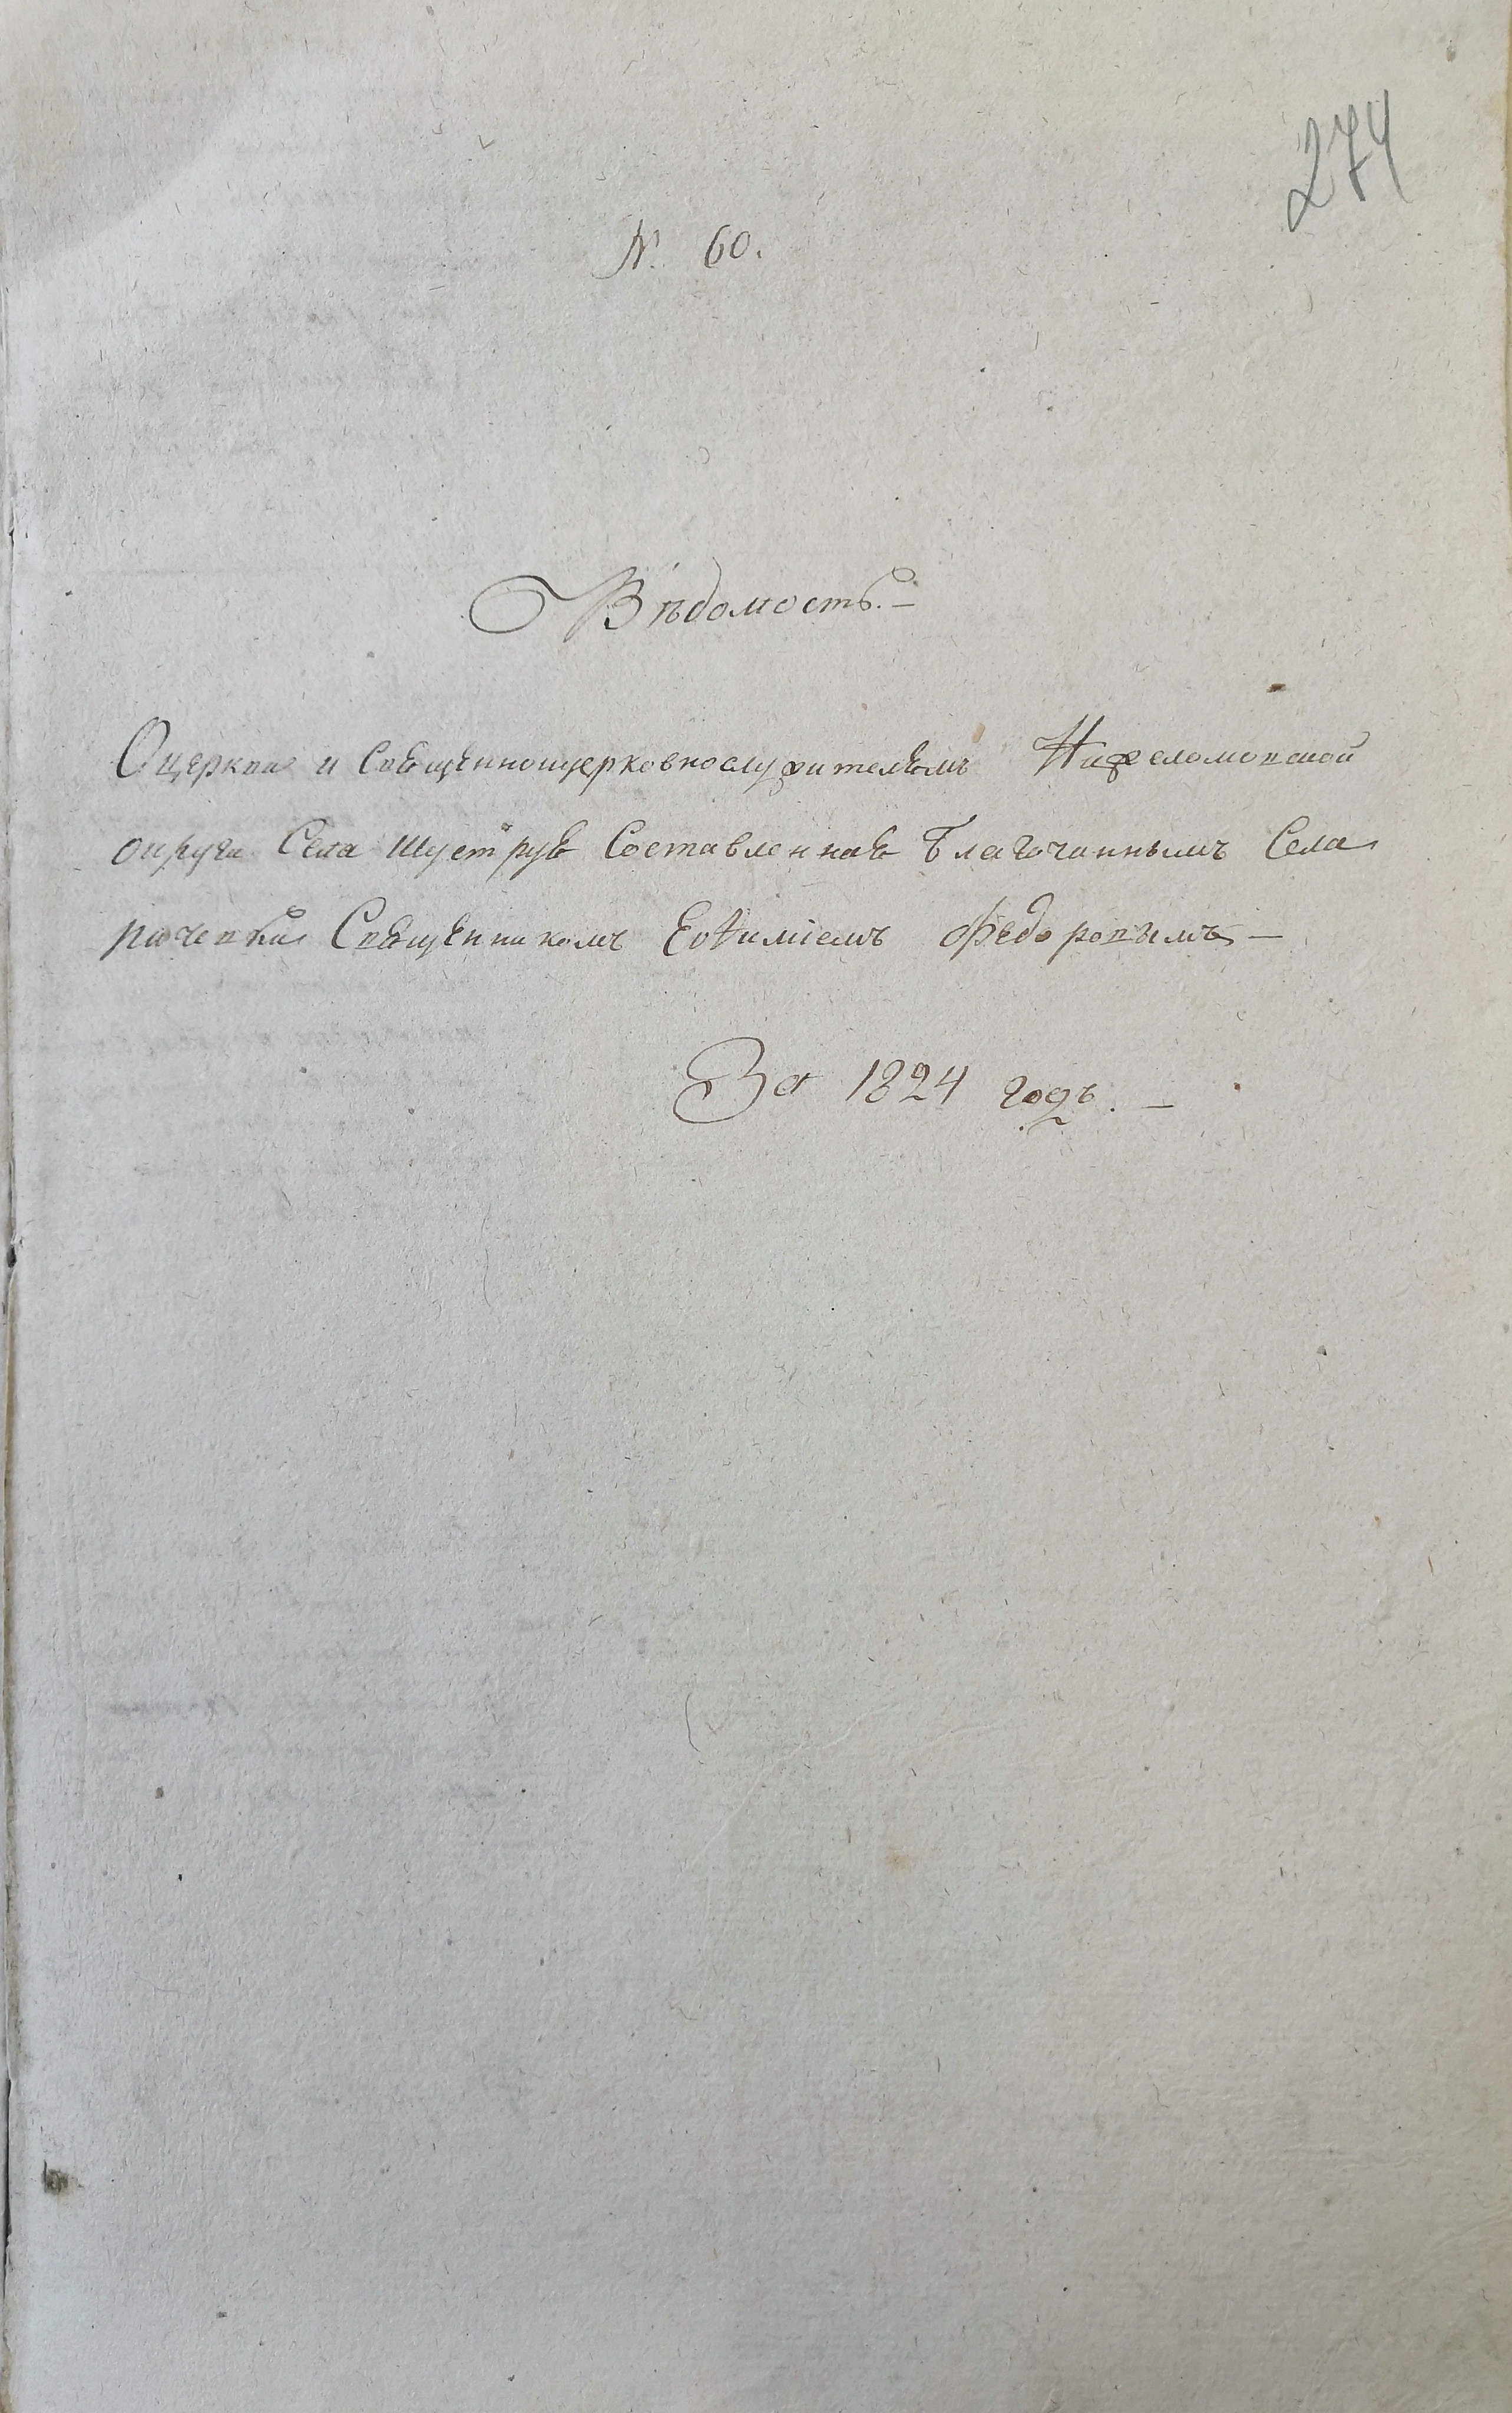 274
N. 60.
Вѣдомость. —
О церкви и Священноцерковнослужителяхъ Нижеломовской
округи Села Шуструя Составленная Благочиннымъ Села
Священникомъ Еѵѳиміемъ Ѳедоровымъ —
За 1824 годъ. —